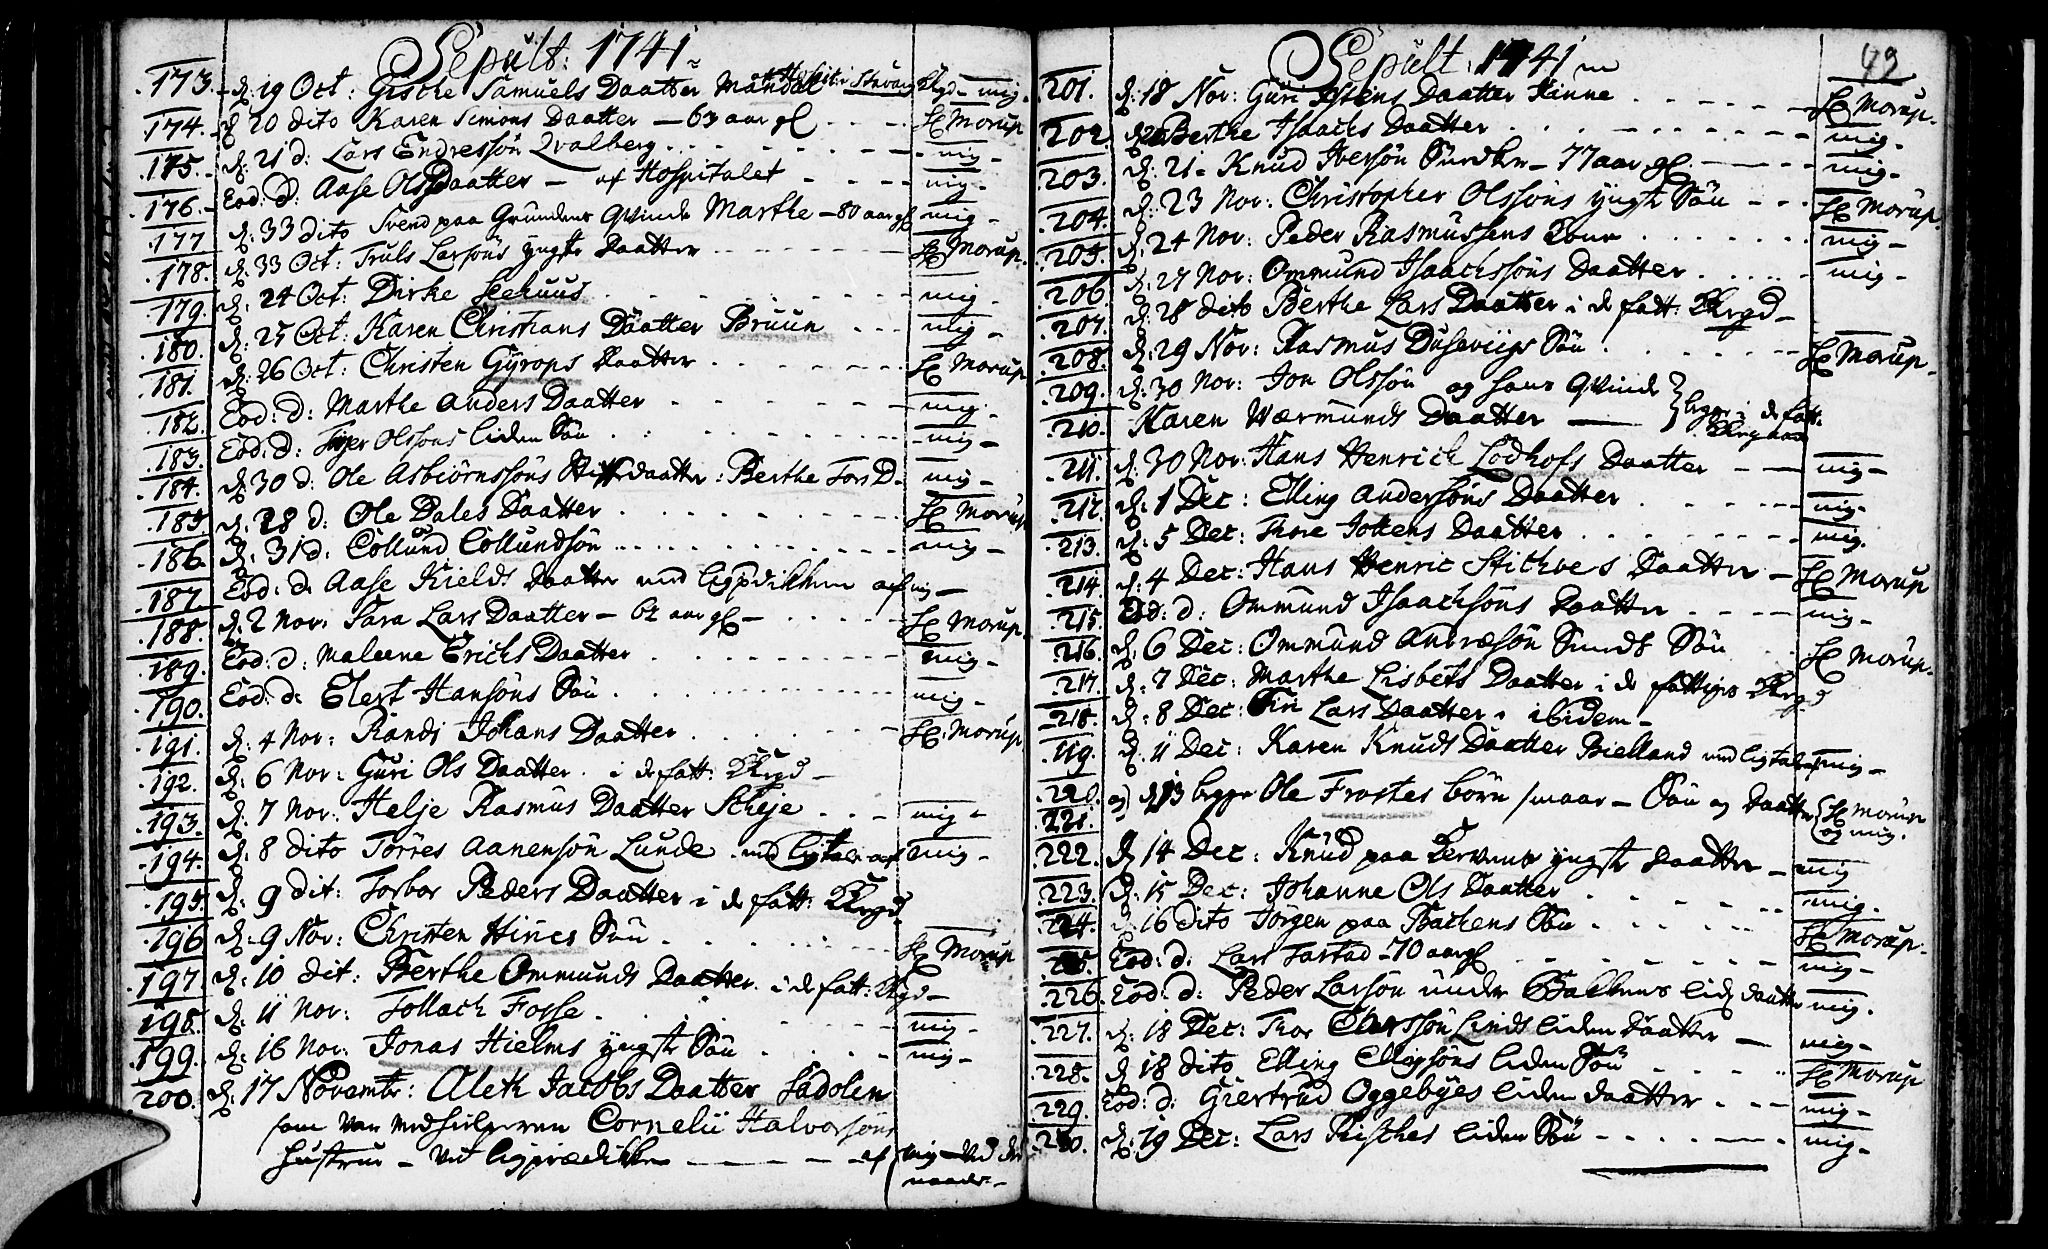 Sepult: 1741
173. d. 19 Oct: Giske Samuels Daatter Mandal mig.
174. d 20 dito Karen Simons Daatter — 63 aar gl Hr Morup
175. d: 21 d: Lars Endressøn Qvalberg mig
176. Eod: d: Aase Olsdaatter — af Hospitalet mig
177 d: 33 dito Svend paa Grundens Qvinde Marthe — 80 aar gl mig
178. d: 33 Oct: Truls Larsøns yngste Daatter Hr Morup.
179. d: 24 Oct: Dirke Seehuus mig
180. d: 25 Oct: Karen Christians Daatter Bruun mig
181. d: 26 Oct: Christen Gyrops Daatter Hr Morup
182. Eod: d: Marthe Anders Daatter mig
183. Eod: D: Olssons liden Søn mig
184. d 30 d: Ole Asbiørnssøns Stifdaatter: Berthe Tors D. mig
185 d. 28 d: Ole Dales Daatter Hr Morup
186. d: 31 d: Collund Collundsøn mig
187 Eod: d: Aase Kields Daatter med ligprædikken af mig
188. d. 2 Nov: Sara Lars Daatter — 62 aar gl Hr Morup.
189. Eod: d: Maleene Erichs Daatter mig
190. Eod: d: Elert Hansøns Søn mig
191. d: 4 Nov: Randi Johans Daatter Hr: Morup.
192. d: 6 Nov: Guri Ols Daatter i de fatt: Kirgd
193. d: 7 Nov: Helje Rasmus Daatter Scheje mig
194. d: 8 dito Tørres Aanensøn Lunde med ligtale af mig
195 d: 9 dit: Torbor Peders Daatter i de fatt: Kirgd
196 d: 9 Nov: Christen Hines Søn Hr Morup
197. d: 10 dit: Berthe Ommunds Daatter i de fatt: Kirgd
198. d: 11 Nov: Tollach Fosse mig
199. d: 16 Nov: Jonas Hielms yngste Søn mig
200. d: 17 Novembr: Aleth Jacobs Daatter Sadolen
som var Medhielperen Cornelii Halvorsøns
Hustrue — ved ligprædikken af mig
Sepult: 1741
49
201. d: 18 Nov: Guri Daatter Hr Morup.
202 Berthe Isaachs Daatter mig
203. d: 21 Knud Iversøn — 77 aar gl. mig
204. d: 23 Nov: Christopher Olssøns yngste Søn Hr Morup.
205. d: 24 Nov: Peder Rasmussens mig
206. d: 27 Nov: Ommund Isaachssøns Daatter mig
207. d: 28 dito Berthe Lars Daatter i de fatt: Kirgd
208. d: 29 Nov: Rasmus Dusevigs Søn Hr Morup.
209. d: 30 Nov: Jon Olssøn og hans Qvinde
210. Karen Wærmunds Daatter } begge i de fatt.
211. d: 30 Nov: Hans Henrich Lodhofs Daatter mig
212. d: 1 Dec: Elling Andersøns Daatter mig
213. d: 5 Dec: Thore Daatter mig.
214 d: 4 Dec: Hans Henric Daatter Hr Morup
215. Eod: d: Ommund Isaachsøns Daatter mig
216. d: 6 Dec: Ommund Andræsøn Sunds Søn Hr Morup.
217. d: 7 Dec: Marthe Lisbets Daatter i de fattiges Kirgd
218. d: 8 Dec: Siri Lars Daatter ibidem
219. d: 11 Dec: Karen Knuds Daatter Bielland med ligtale mig
220. og d 13 begge Ole Frostes børn smaae — Søn og Daatter { Hr Morup
221. og mig.
222. d 14 Dec: Knud paa yngste Daatter mig
223. d: 15 Dec: Johanne Ols Daatter mig.
224. d: 16 dito Jørgen paa Bachens Søn Hr Morup.
225. Eod: d: Lars Tastad — 70 aar gl mig
226. Eod: d: Peder Larsøn under Bachens lid daatter mig.
227. d: 18 Dec: Thor liden Daatter mig
228. d 18 dito Elling Ellingsøns liden Søn Hr Morup
229. Eod: d: Giertrud Oggebyes liden daatter mig
230. d: 19 Dec: Lars Risches liden Søn mig